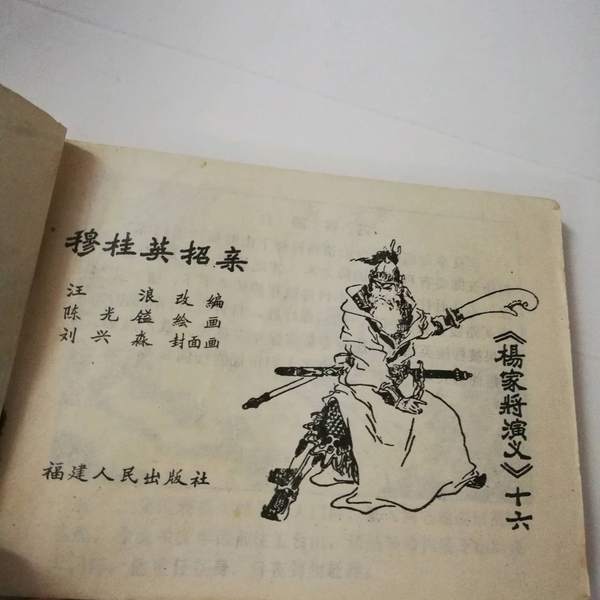 穆桂英招亲
汪浪改编
陈光镒绘画
刘兴淼封面画
福建人民出版社
《楊家將演义》十六